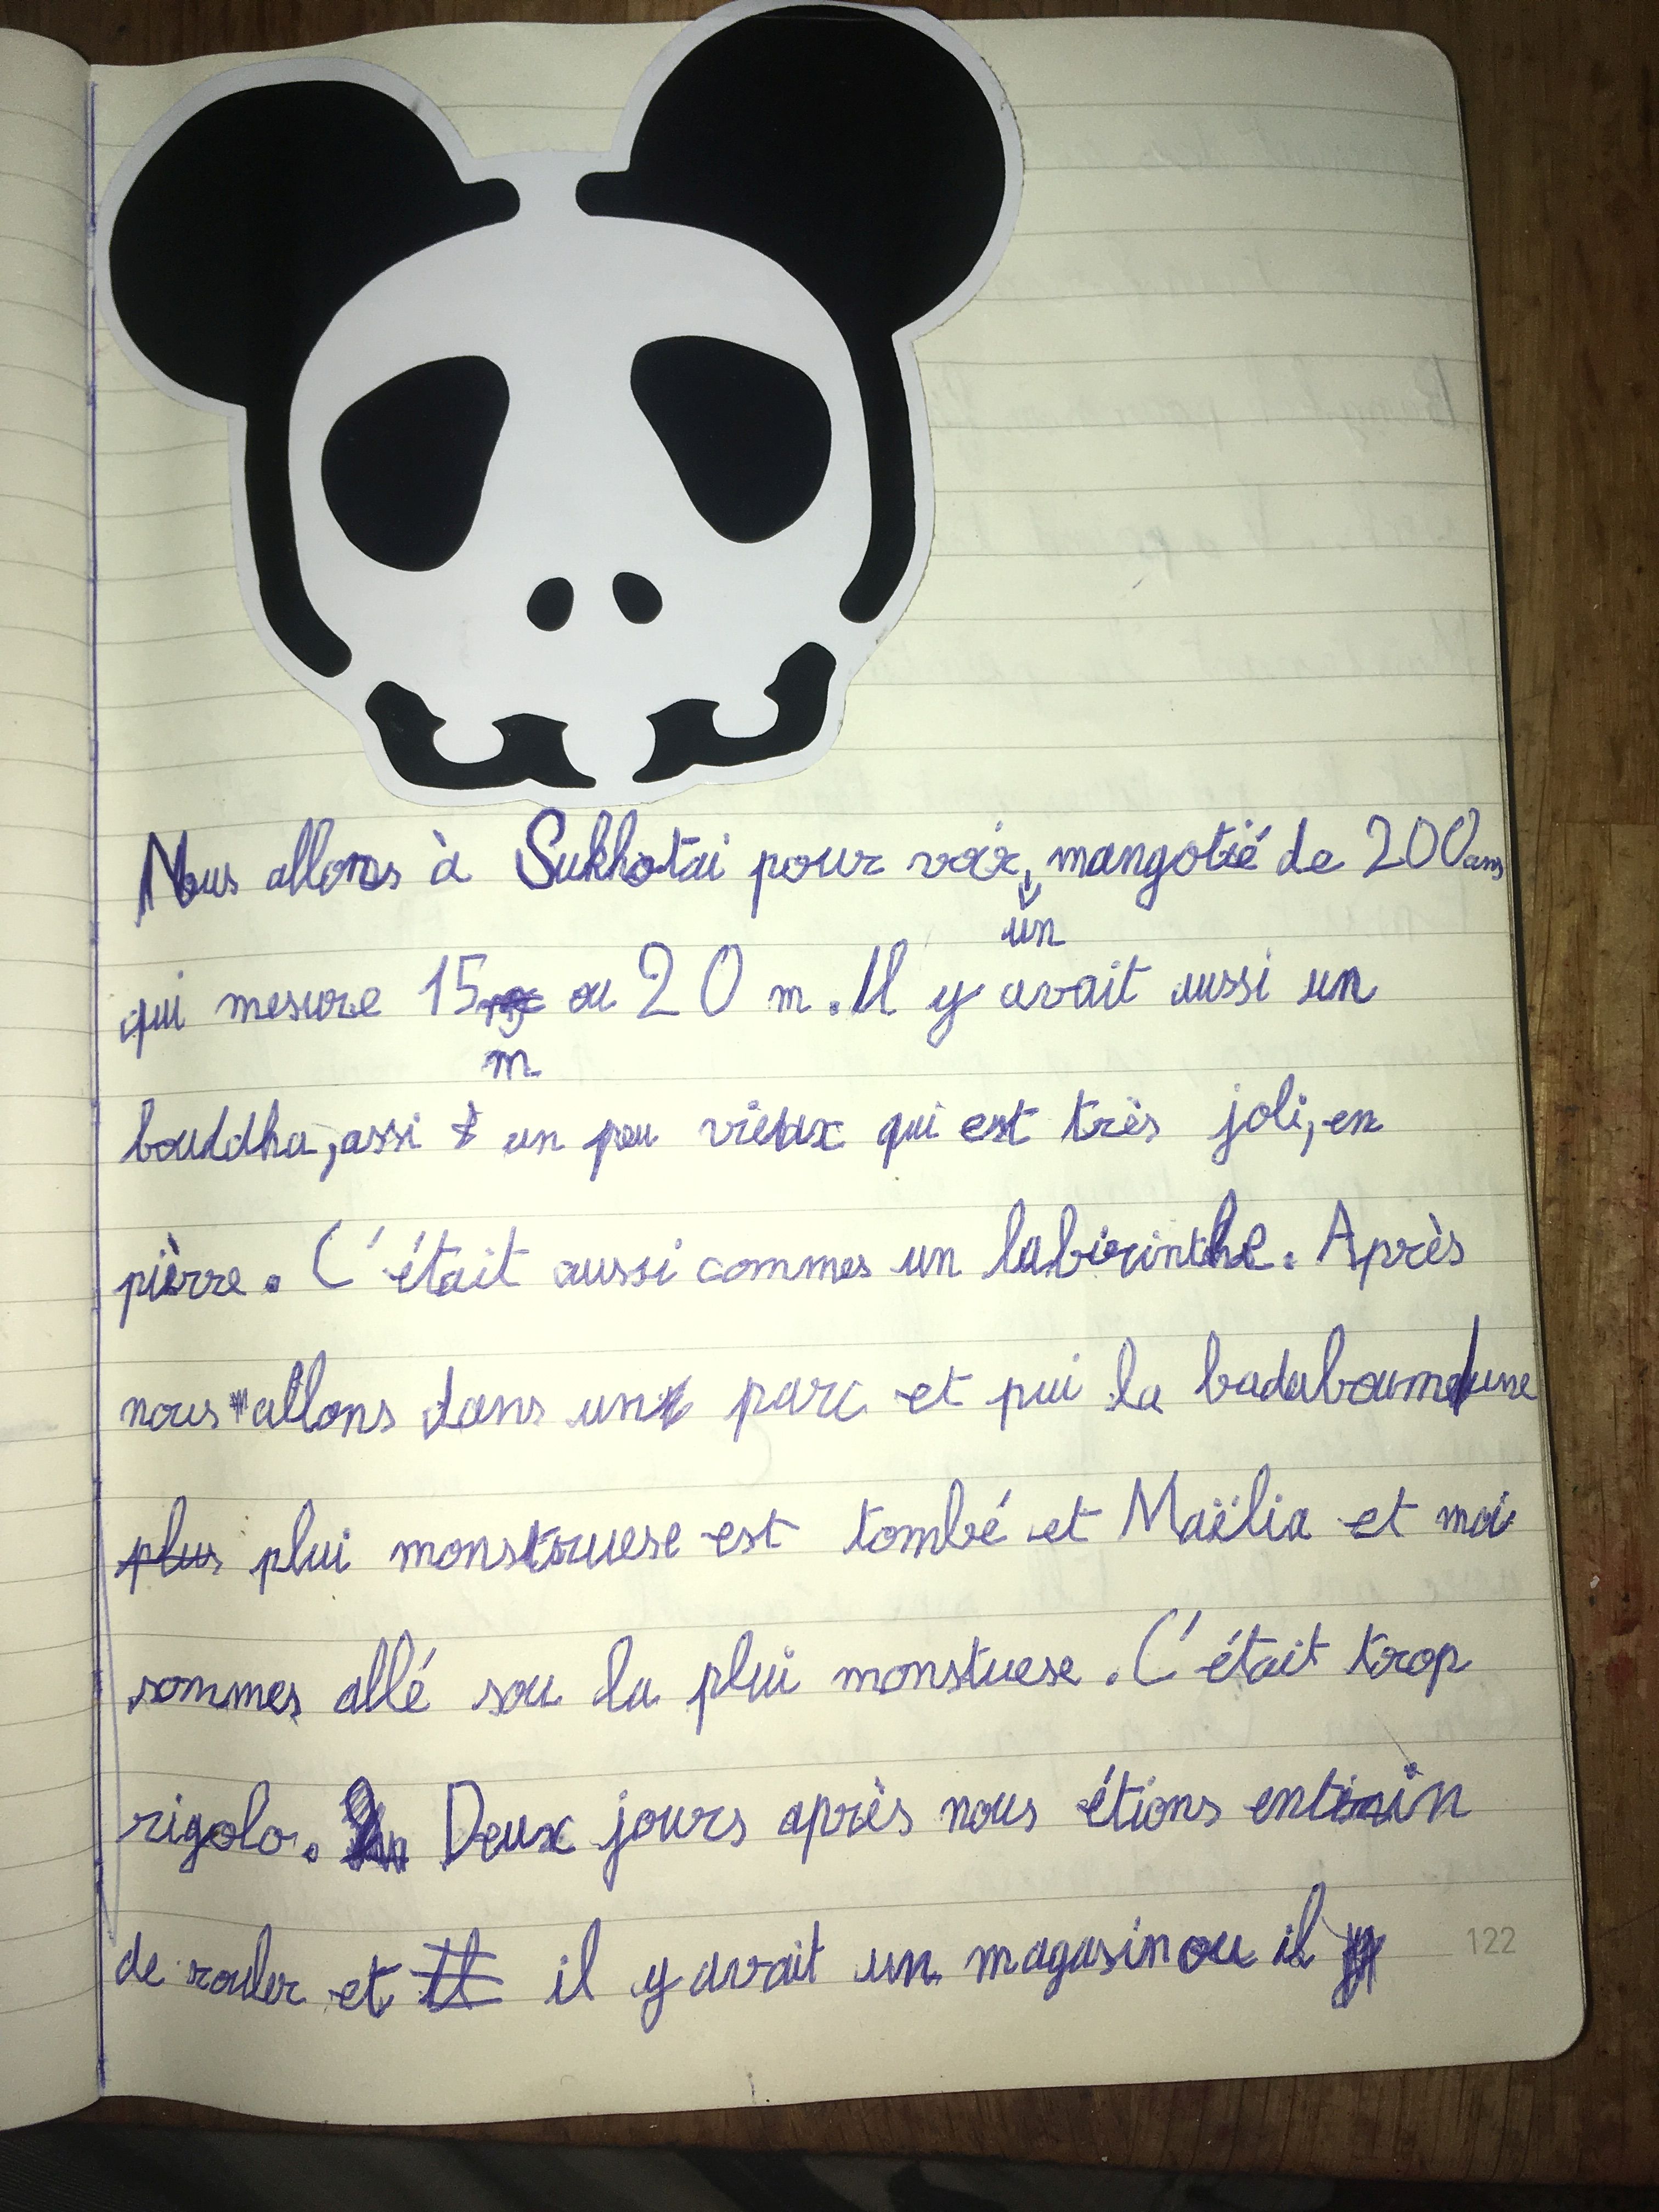 Nous allons à Sukhotai pour voir un mangotié de 200 ans
qui mesure 15 m ou 20 m. Il y avait aussi un
bouddha, assi un peu vieux qui est très joli, en
pièrre. C'était aussi commes un labirinthe. Après
nous allons dans un parc et pui la badaboum d'une
plus plui monstruese est tombé et Maëlia et moi
sommes allé sou la plui monstuese. C'était trop
rigolo. Deux jours après nous étions entin
de rouler et il y avait un magasin ou il
122